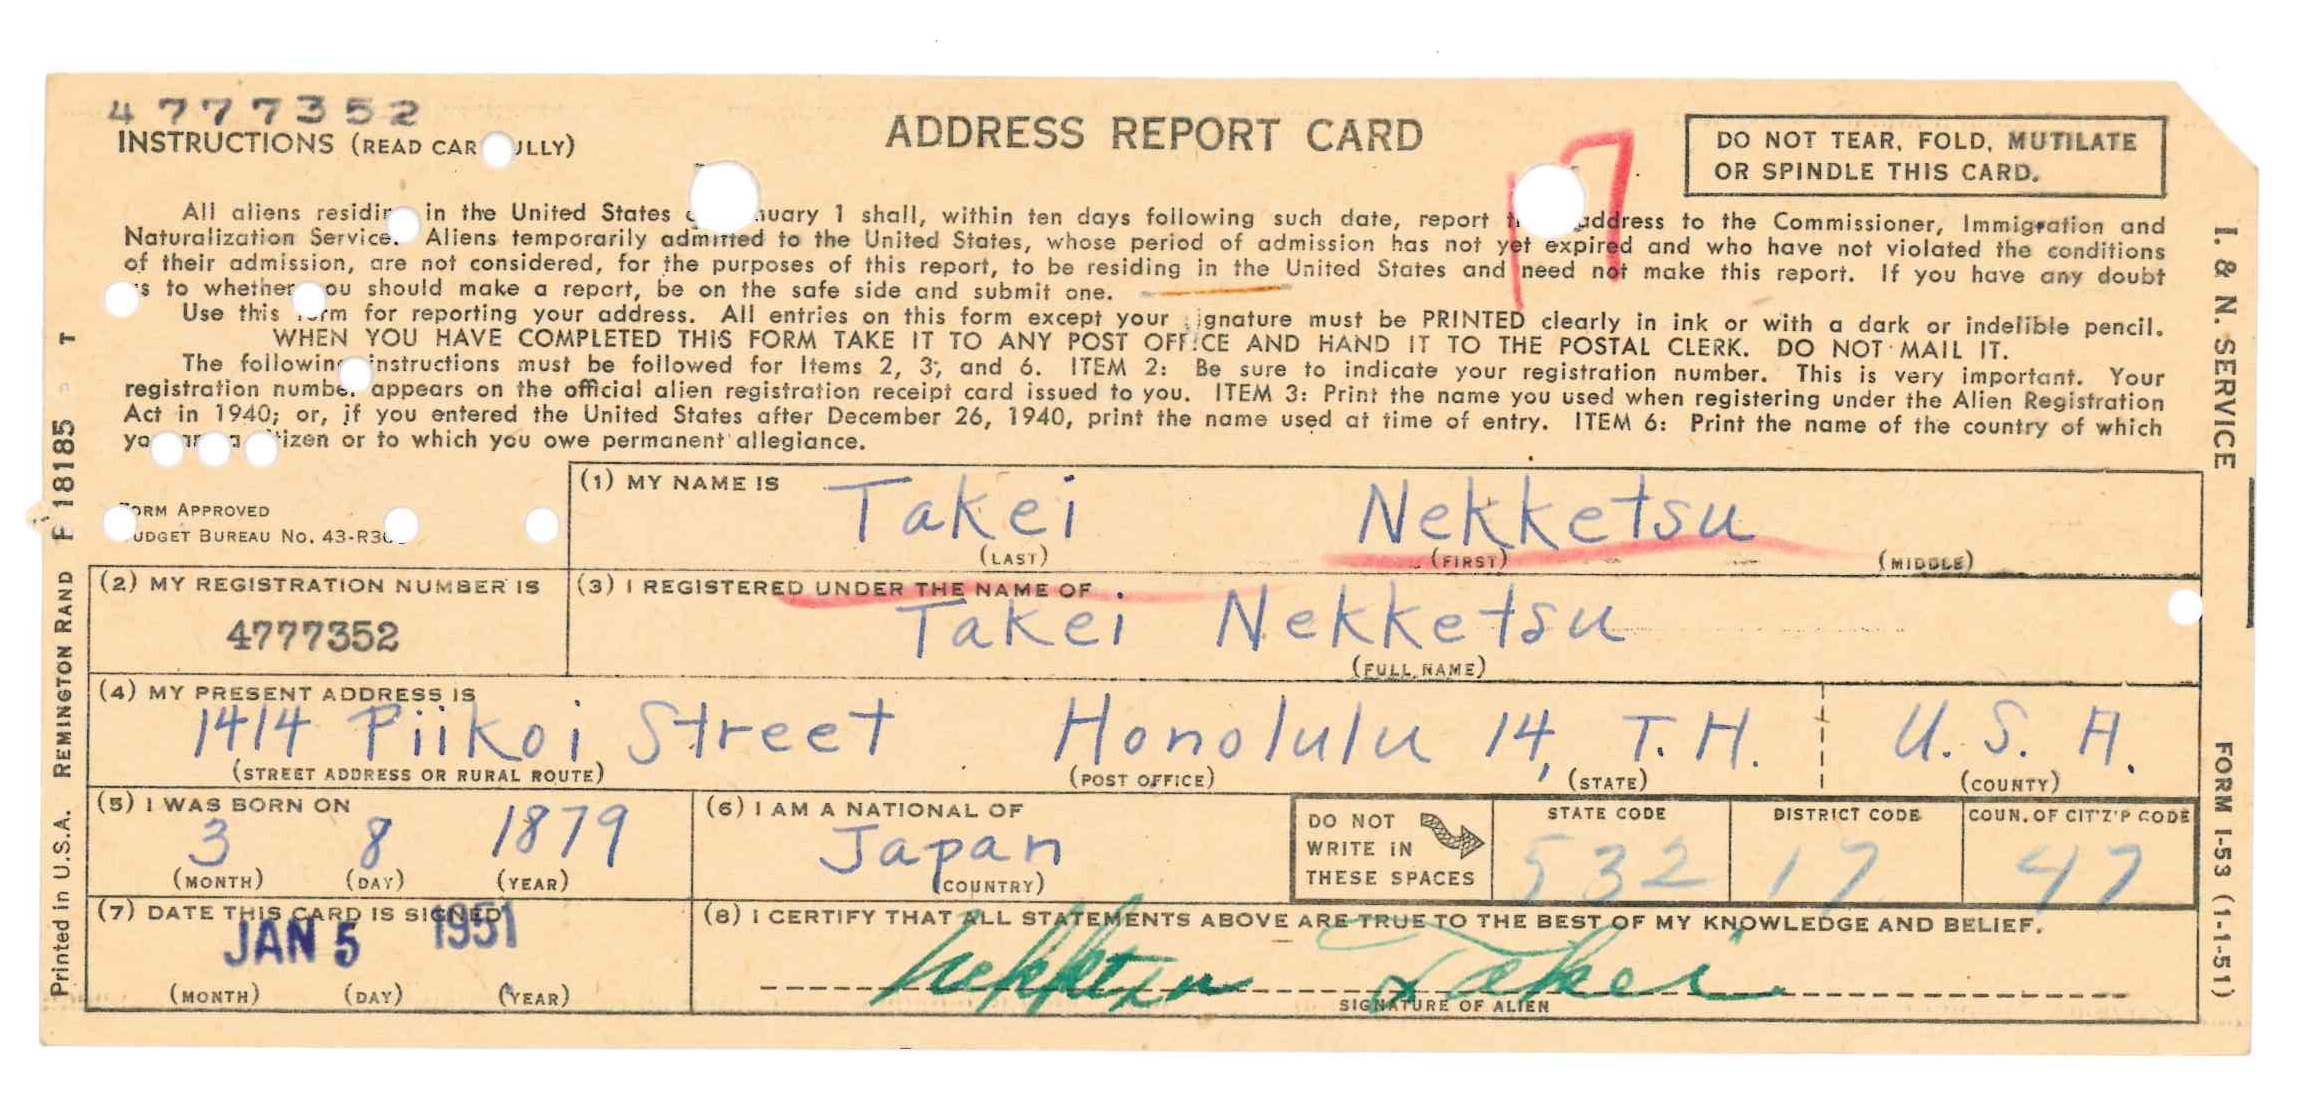 4777352
INSTRUCTIONS (READ CAR ULLY)
ADDRESS REPORT CARD
17
DO NOT TEAR, FOLD, MUTILATE
OR SPINDLE THIS CARD.
All aliens residin in the United States uary 1 shall, within ten days following such date, report address to the Commissioner, Immigration and
Naturalization Service. Aliens temporarily admitted to the United States, whose period of admission has not yet expired and who have not violated the conditions
of their admission, are not considered, for the purposes of this report, to be residing in the United States and need not make this report. If you have any doubt
s to whether ou should make a report, be on the safe side and submit one.
Use this rm for reporting your address. All entries on this form except your ignature must be PRINTED clearly in ink or with a dark or indelible pencil.
WHEN YOU HAVE COMPLETED THIS FORM TAKE IT TO ANY POST OFFICE AND HAND IT TO THE POSTAL CLERK. DO NOT MAIL IT.
The following instructions must be followed for Items 2, 3, and 6. ITEM 2: Be sure to indicate your registration number. This is very important. Your
registration number appears on the official alien registration receipt card issued to you. ITEM 3: Print the name you used when registering under the Alien Registration
Act in 1940; or, if you entered the United States after December 26, 1940, print the name used at time of entry. ITEM 6: Print the name of the country of which
yo ar a tizen or to which you owe permanent allegiance.
FORM APPROVED
UDGET BUREAU No. 43-R30
(1) MY NAME IS Takei Nekketsu
(LAST) (FIRST) (MIDDLE)
(2) MY REGISTRATION NUMBER IS
4777352
(3) I REGISTERED UNDER THE NAME OF
Takei Nekketsu
(FULL NAME)
(4) MY PRESENT ADDRESS IS
1414 Piikoi Street Honolulu 14, T. H. U. S. A.
(STREET ADDRESS OR RURAL ROUTE) (POST OFFICE) (STATE) (COUNTY)
(5) I WAS BORN ON
3 8 1879
(MONTH) (DAY) (YEAR)
(6) I AM A NATIONAL OF
Japan
(COUNTRY)
DO NOT
WRITE IN
THESE SPACES
STATE CODE
532
DISTRICT CODE
17
COUN. OF CIT'Z'P CODE
47
(7) DATE THIS CARD IS SIGNED
JAN 5 1951
(MONTH) (DAY) (YEAR)
(8) I CERTIFY THAT ALL STATEMENTS ABOVE ARE TRUE TO THE BEST OF MY KNOWLEDGE AND BELIEF.
Nekketsu Takei
SIGNATURE OF ALIEN
Printed in U.S.A. REMINGTON RAND F 18185 - T
I. & N. SERVICE FORM I-53 (1-1-51)